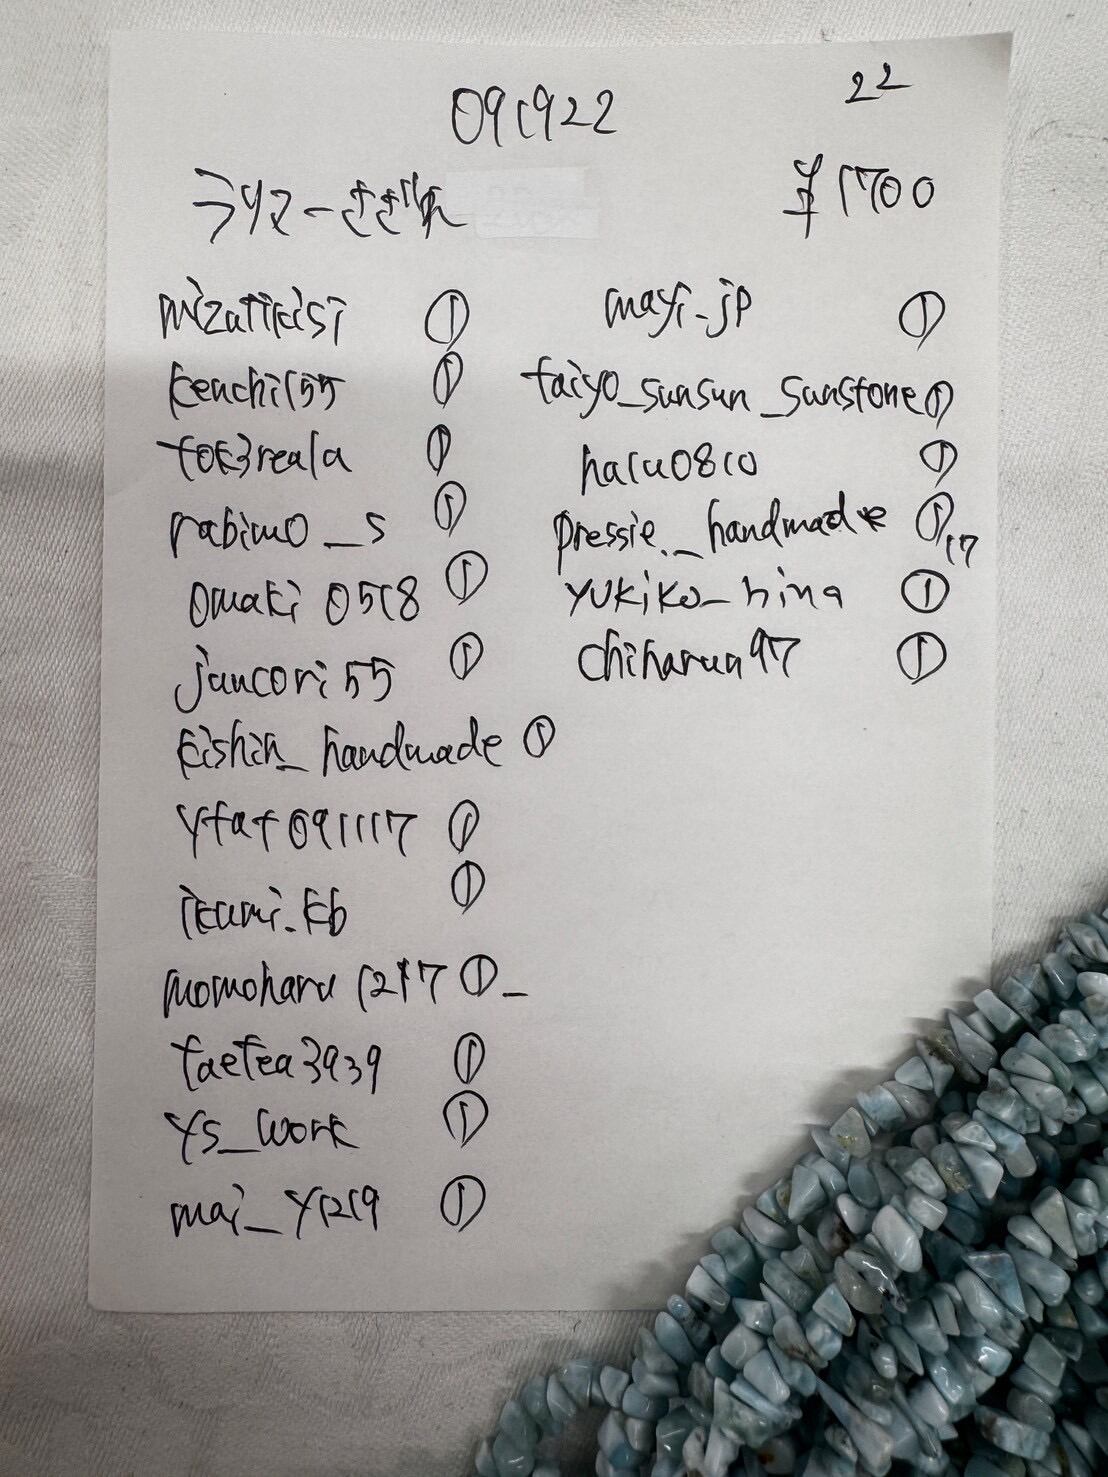 091922
22
ラリマーさざれ
¥1700
mizutikisi ①
kenchi155 ①
tok3reala ①
rabimo_s ①
omaki0518 ①
jancori55 ①
kishin_handmade ①
ytat091117 ①
ikumi.kb ①
momoharu1217 ①_
taetea3939 ①
ys_work ①
mai_y1219 ①
mayi-jp ①
taiyo_sunsun_sunstone ①
haru0810 ①
pressie._handmade ① 17
yukiko_hina ①
chiharun97 ①